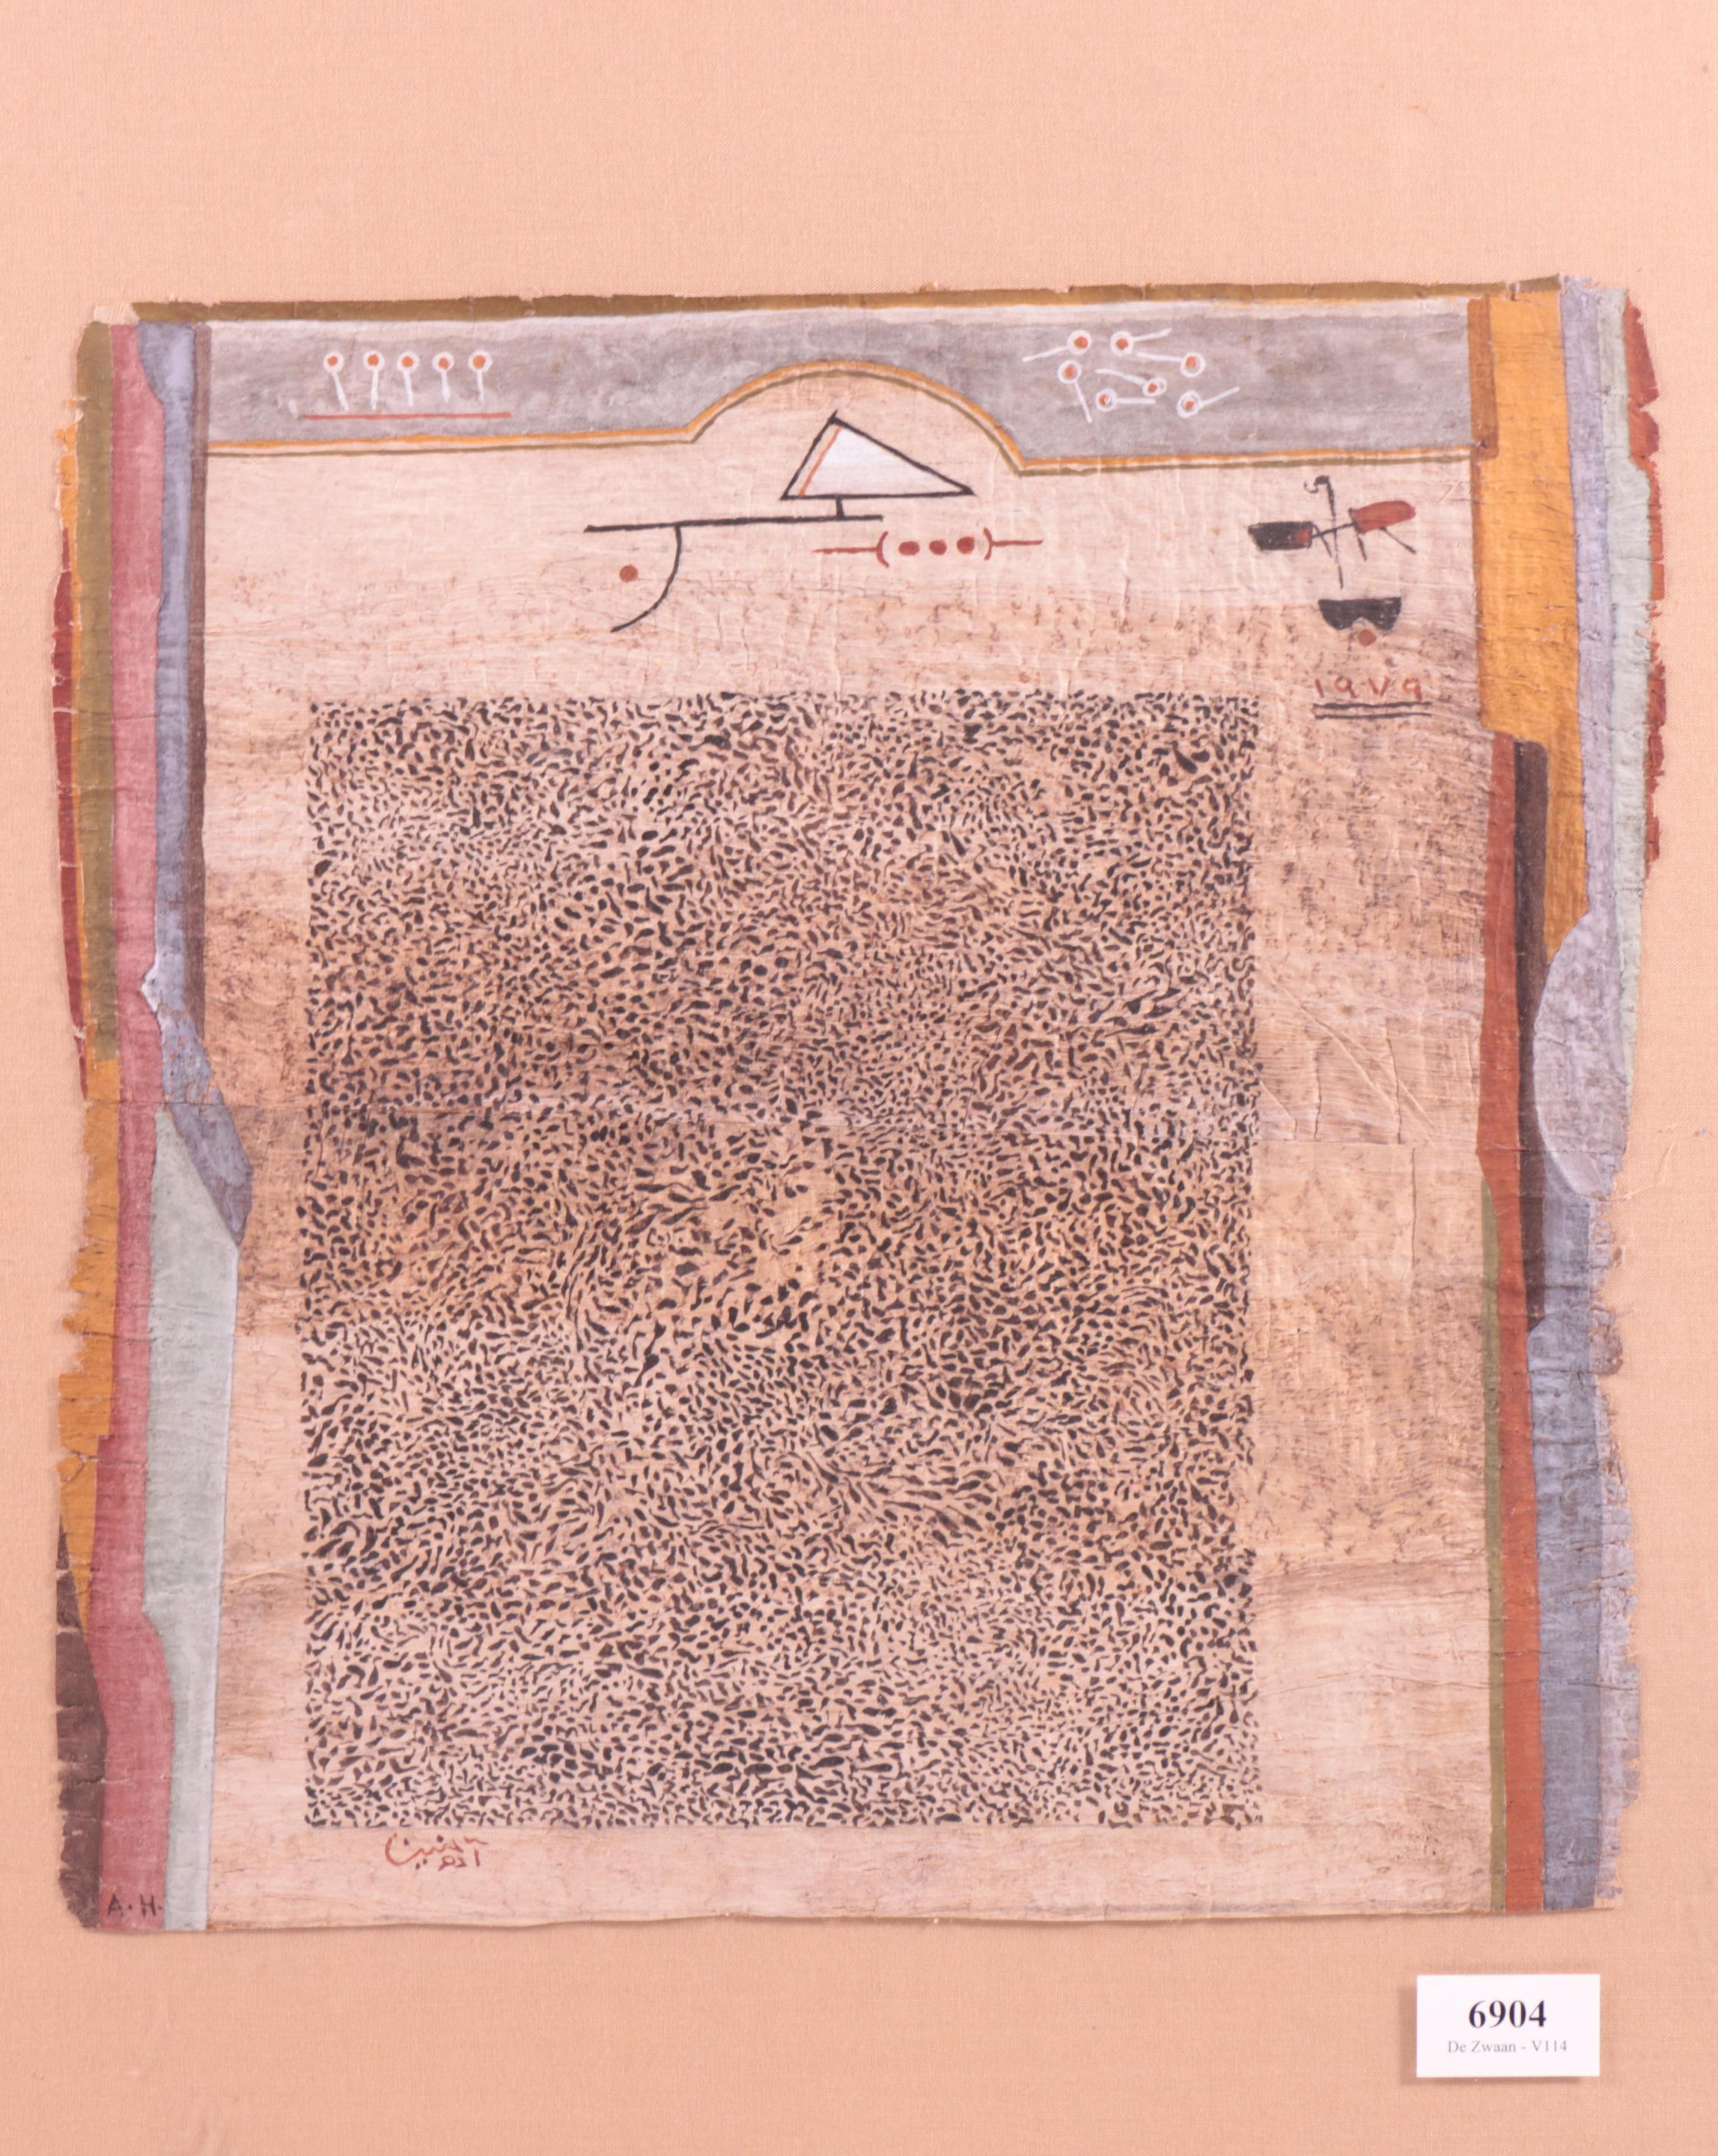 ١٩٧٩
آدم حنين
A.H.
6904
De Zwaan - V114